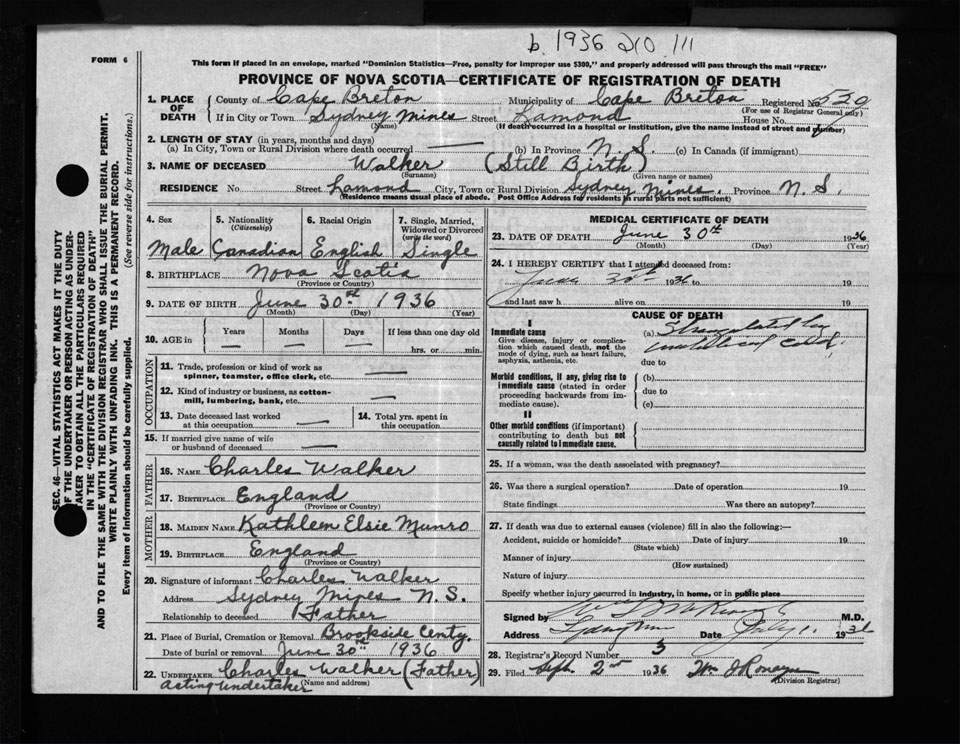 b. 1936 210 111
FORM 6
This form if placed in an envelope, marked "Dominion Statistics—Free, penalty for improper use $300," and properly addressed will pass through the mail "FREE"
PROVINCE OF NOVA SCOTIA—CERTIFICATE OF REGISTRATION OF DEATH
SEC. 46—VITAL STATISTICS ACT MAKES IT THE DUTY
OF THE UNDERTAKER OR PERSON ACTING AS UNDER-
TAKER TO OBTAIN ALL THE PARTICULARS REQUIRED
IN THE "CERTIFICATE OF REGISTRATION OF DEATH"
AND TO FILE THE SAME WITH THE DIVISION REGISTRAR WHO SHALL ISSUE THE BURIAL PERMIT.
WRITE PLAINLY WITH UNFADING INK. THIS IS A PERMANENT RECORD.
Every item of Information should be carefully supplied. (See reverse side for instructions.)
1. PLACE OF DEATH
County of Cape Breton Municipality of Cape Breton Registered No. 520
(For use of Registrar General only)
If in City or Town Sydney Mines Street Lamond House No.
(Name) (If death occurred in a hospital or institution, give the name instead of street and number)
2. LENGTH OF STAY (in years, months and days)
(a) In City, Town or Rural Division where death occurred — (b) In Province N. S. (c) In Canada (if immigrant)
3. NAME OF DECEASED Walker (Still Birth)
(Surname) (Given name or names)
RESIDENCE No. Street Lamond City, Town or Rural Division Sydney Mines. Province N. S.
(Residence means usual place of abode. Post Office Address for residents in rural parts not sufficient)
4. Sex 5. Nationality (Citizenship) 6. Racial Origin 7. Single, Married, Widowed or Divorced (write the word)
Male Canadian English Single
8. BIRTHPLACE Nova Scotia
(Province or Country)
9. DATE OF BIRTH June 30th 1936
(Month) (Day) (Year)
10. AGE in Years Months Days If less than one day old
— — — hrs. or min.
OCCUPATION
11. Trade, profession or kind of work as
spinner, teamster, office clerk, etc. —
12. Kind of industry or business, as cotton-
mill, lumbering, bank, etc. —
13. Date deceased last worked
at this occupation —
14. Total yrs. spent in
this occupation
15. If married give name of wife
or husband of deceased —
FATHER
16. NAME Charles Walker
17. BIRTHPLACE England
(Province or Country)
MOTHER
18. MAIDEN NAME Kathleen Elsie Munro
19. BIRTHPLACE England
(Province or Country)
20. Signature of informant Charles Walker
Address Sydney Mines N. S.
Relationship to deceased Father
21. Place of Burial, Cremation or Removal Brookside Cemty.
Date of burial or removal June 30th 1936
22. UNDERTAKER Charles Walker (Father)
acting undertaker (Name and address)
MEDICAL CERTIFICATE OF DEATH
23. DATE OF DEATH June 30th 1936
(Month) (Day) (Year)
24. I HEREBY CERTIFY that I attended deceased from:
June 30th 1936 to 19
and last saw h alive on 19
CAUSE OF DEATH
I
Immediate cause
Give disease, injury or complica-
tion which caused death, not the
mode of dying, such as heart failure,
asphyxia, asthenia, etc.
(a) Strangulated by
umbilical cord
due to
Morbid conditions, if any, giving rise to
immediate cause (stated in order
proceeding backwards from im-
mediate cause).
(b)
due to
(c)
II
Other morbid conditions (if important)
contributing to death but not
causally related to immediate cause.
25. If a woman, was the death associated with pregnancy?
26. Was there a surgical operation? Date of operation 19
State findings Was there an autopsy?
27. If death was due to external causes (violence) fill in also the following:—
Accident, suicide or homicide? Date of injury 19
(State which)
Manner of injury
(How sustained)
Nature of injury
Specify whether injury occurred in industry, in home, or in public place
Signed by M.D.
Address Date July 1. 1936
28. Registrar's Record Number 3
29. Filed Sept. 2nd 1936 Wm J Ronayne
(Division Registrar)